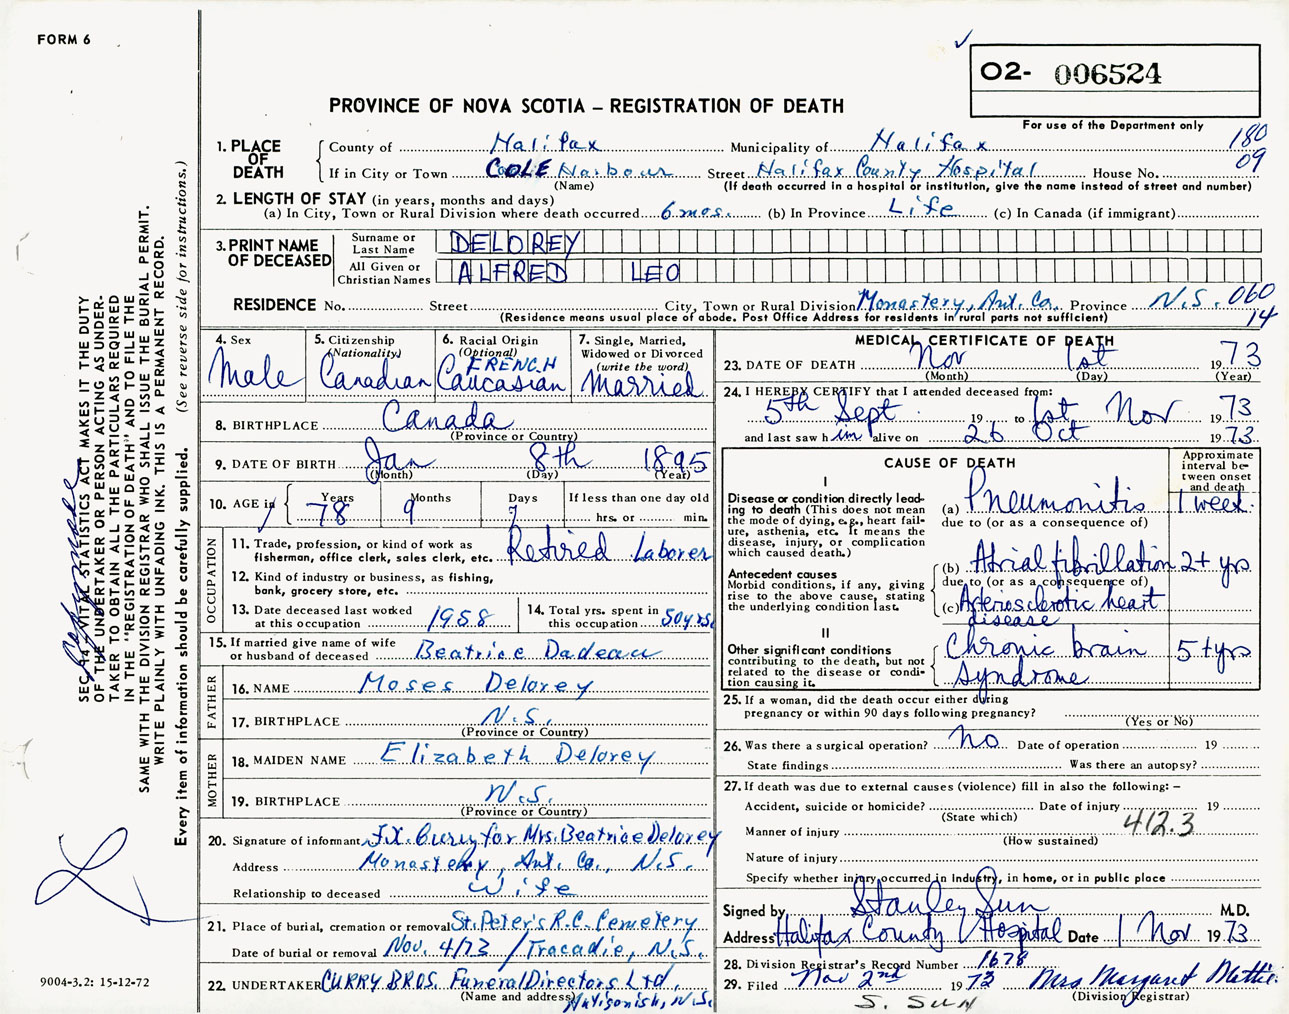 FORM 6
02- 006524
PROVINCE OF NOVA SCOTIA – REGISTRATION OF DEATH
For use of the Department only
180
09
1. PLACE OF DEATH
County of Halifax Municipality of Halifax
If in City or Town COLE Harbour Street Halifax County Hospital House No.
(Name) (If death occurred in a hospital or institution, give the name instead of street and number)
2. LENGTH OF STAY (in years, months and days)
(a) In City, Town or Rural Division where death occurred 6 mos. (b) In Province Life (c) In Canada (if immigrant)
3. PRINT NAME OF DECEASED
Surname or Last Name DELOREY
All Given or Christian Names ALFRED LEO
RESIDENCE No. Street City, Town or Rural Division Monastery, Ant. Co. Province N.S. 060
14
(Residence means usual place of abode. Post Office Address for residents in rural parts not sufficient)
4. Sex
Male
5. Citizenship
(Nationality)
Canadian
6. Racial Origin
(Optional)
FRENCH
Caucasian
7. Single, Married,
Widowed or Divorced
(write the word)
Married
8. BIRTHPLACE Canada
(Province or Country)
9. DATE OF BIRTH Jan 8th 1895
(Month) (Day) (Year)
10. AGE in
Years Months Days If less than one day old
78 9 7 hrs. or min.
OCCUPATION
11. Trade, profession, or kind of work as
fisherman, office clerk, sales clerk, etc. Retired Laborer
12. Kind of industry or business, as fishing,
bank, grocery store, etc.
13. Date deceased last worked
at this occupation 1958
14. Total yrs. spent in
this occupation 50 yrs.
15. If married give name of wife
or husband of deceased Beatrice Dadeau
FATHER
16. NAME Moses Delorey
17. BIRTHPLACE N.S.
(Province or Country)
MOTHER
18. MAIDEN NAME Elizabeth Delorey
19. BIRTHPLACE N.S.
(Province or Country)
20. Signature of informant F.X. Curry for Mrs. Beatrice Delorey
Address Monastery, Ant. Co., N.S.
Relationship to deceased Wife
21. Place of burial, cremation or removal St. Peter's R.C. Cemetery
Date of burial or removal Nov. 4/73 / Tracadie, N.S.
22. UNDERTAKER CURRY BROS. Funeral Directors Ltd.
(Name and address) Antigonish, N.S.
MEDICAL CERTIFICATE OF DEATH
23. DATE OF DEATH Nov 1st 1973
(Month) (Day) (Year)
24. I HEREBY CERTIFY that I attended deceased from:
5th Sept 19 to 1st Nov 1973
and last saw him alive on 26 Oct 1973
CAUSE OF DEATH
Approximate
interval be-
tween onset
and death
I
Disease or condition directly lead-
ing to death (This does not mean
the mode of dying, e.g., heart fail-
ure, asthenia, etc. It means the
disease, injury, or complication
which caused death.)
(a) Pneumonitis 1 week
due to (or as a consequence of)
Antecedent causes
Morbid conditions, if any, giving
rise to the above cause, stating
the underlying condition last.
(b) Atrial fibrillation 2+ yrs
due to (or as a consequence of)
(c) Arteriosclerotic heart
disease
II
Other significant conditions
contributing to the death, but not
related to the disease or condi-
tion causing it.
Chronic brain 5+ yrs
syndrome
25. If a woman, did the death occur either during
pregnancy or within 90 days following pregnancy?
(Yes or No)
26. Was there a surgical operation? No Date of operation 19
State findings Was there an autopsy?
27. If death was due to external causes (violence) fill in also the following: –
Accident, suicide or homicide? Date of injury 19
(State which) 412.3
Manner of injury
(How sustained)
Nature of injury
Specify whether injury occurred in Industry, in home, or in public place
Signed by Stanley Sun M.D.
Address Halifax County Hospital Date 1 Nov 1973
28. Division Registrar's Record Number 1678
29. Filed Nov 2nd 1973 Mrs Margaret Mattie
(Division Registrar)
S. SUN
SEC. 14 – VITAL STATISTICS ACT MAKES IT THE DUTY
OF THE UNDERTAKER OR PERSON ACTING AS UNDER-
TAKER TO OBTAIN ALL THE PARTICULARS REQUIRED
IN THE "REGISTRATION OF DEATH" AND TO FILE THE
SAME WITH THE DIVISION REGISTRAR WHO SHALL ISSUE THE BURIAL PERMIT.
WRITE PLAINLY WITH UNFADING INK. THIS IS A PERMANENT RECORD.
Every item of information should be carefully supplied. (See reverse side for instructions.)
9004-3.2: 15-12-72